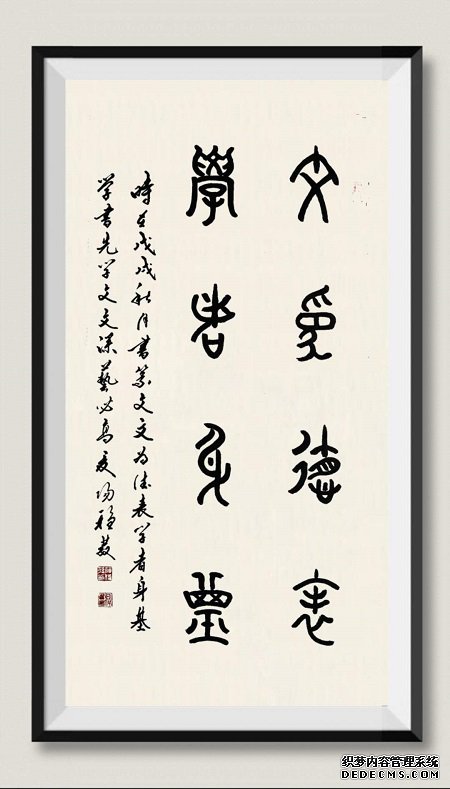 文為德表
學者身基
時在戊戌秋月書篆文文为德表学者身基
学書先学文文深藝必高
织梦内容管理系统
DEDECMS.COM